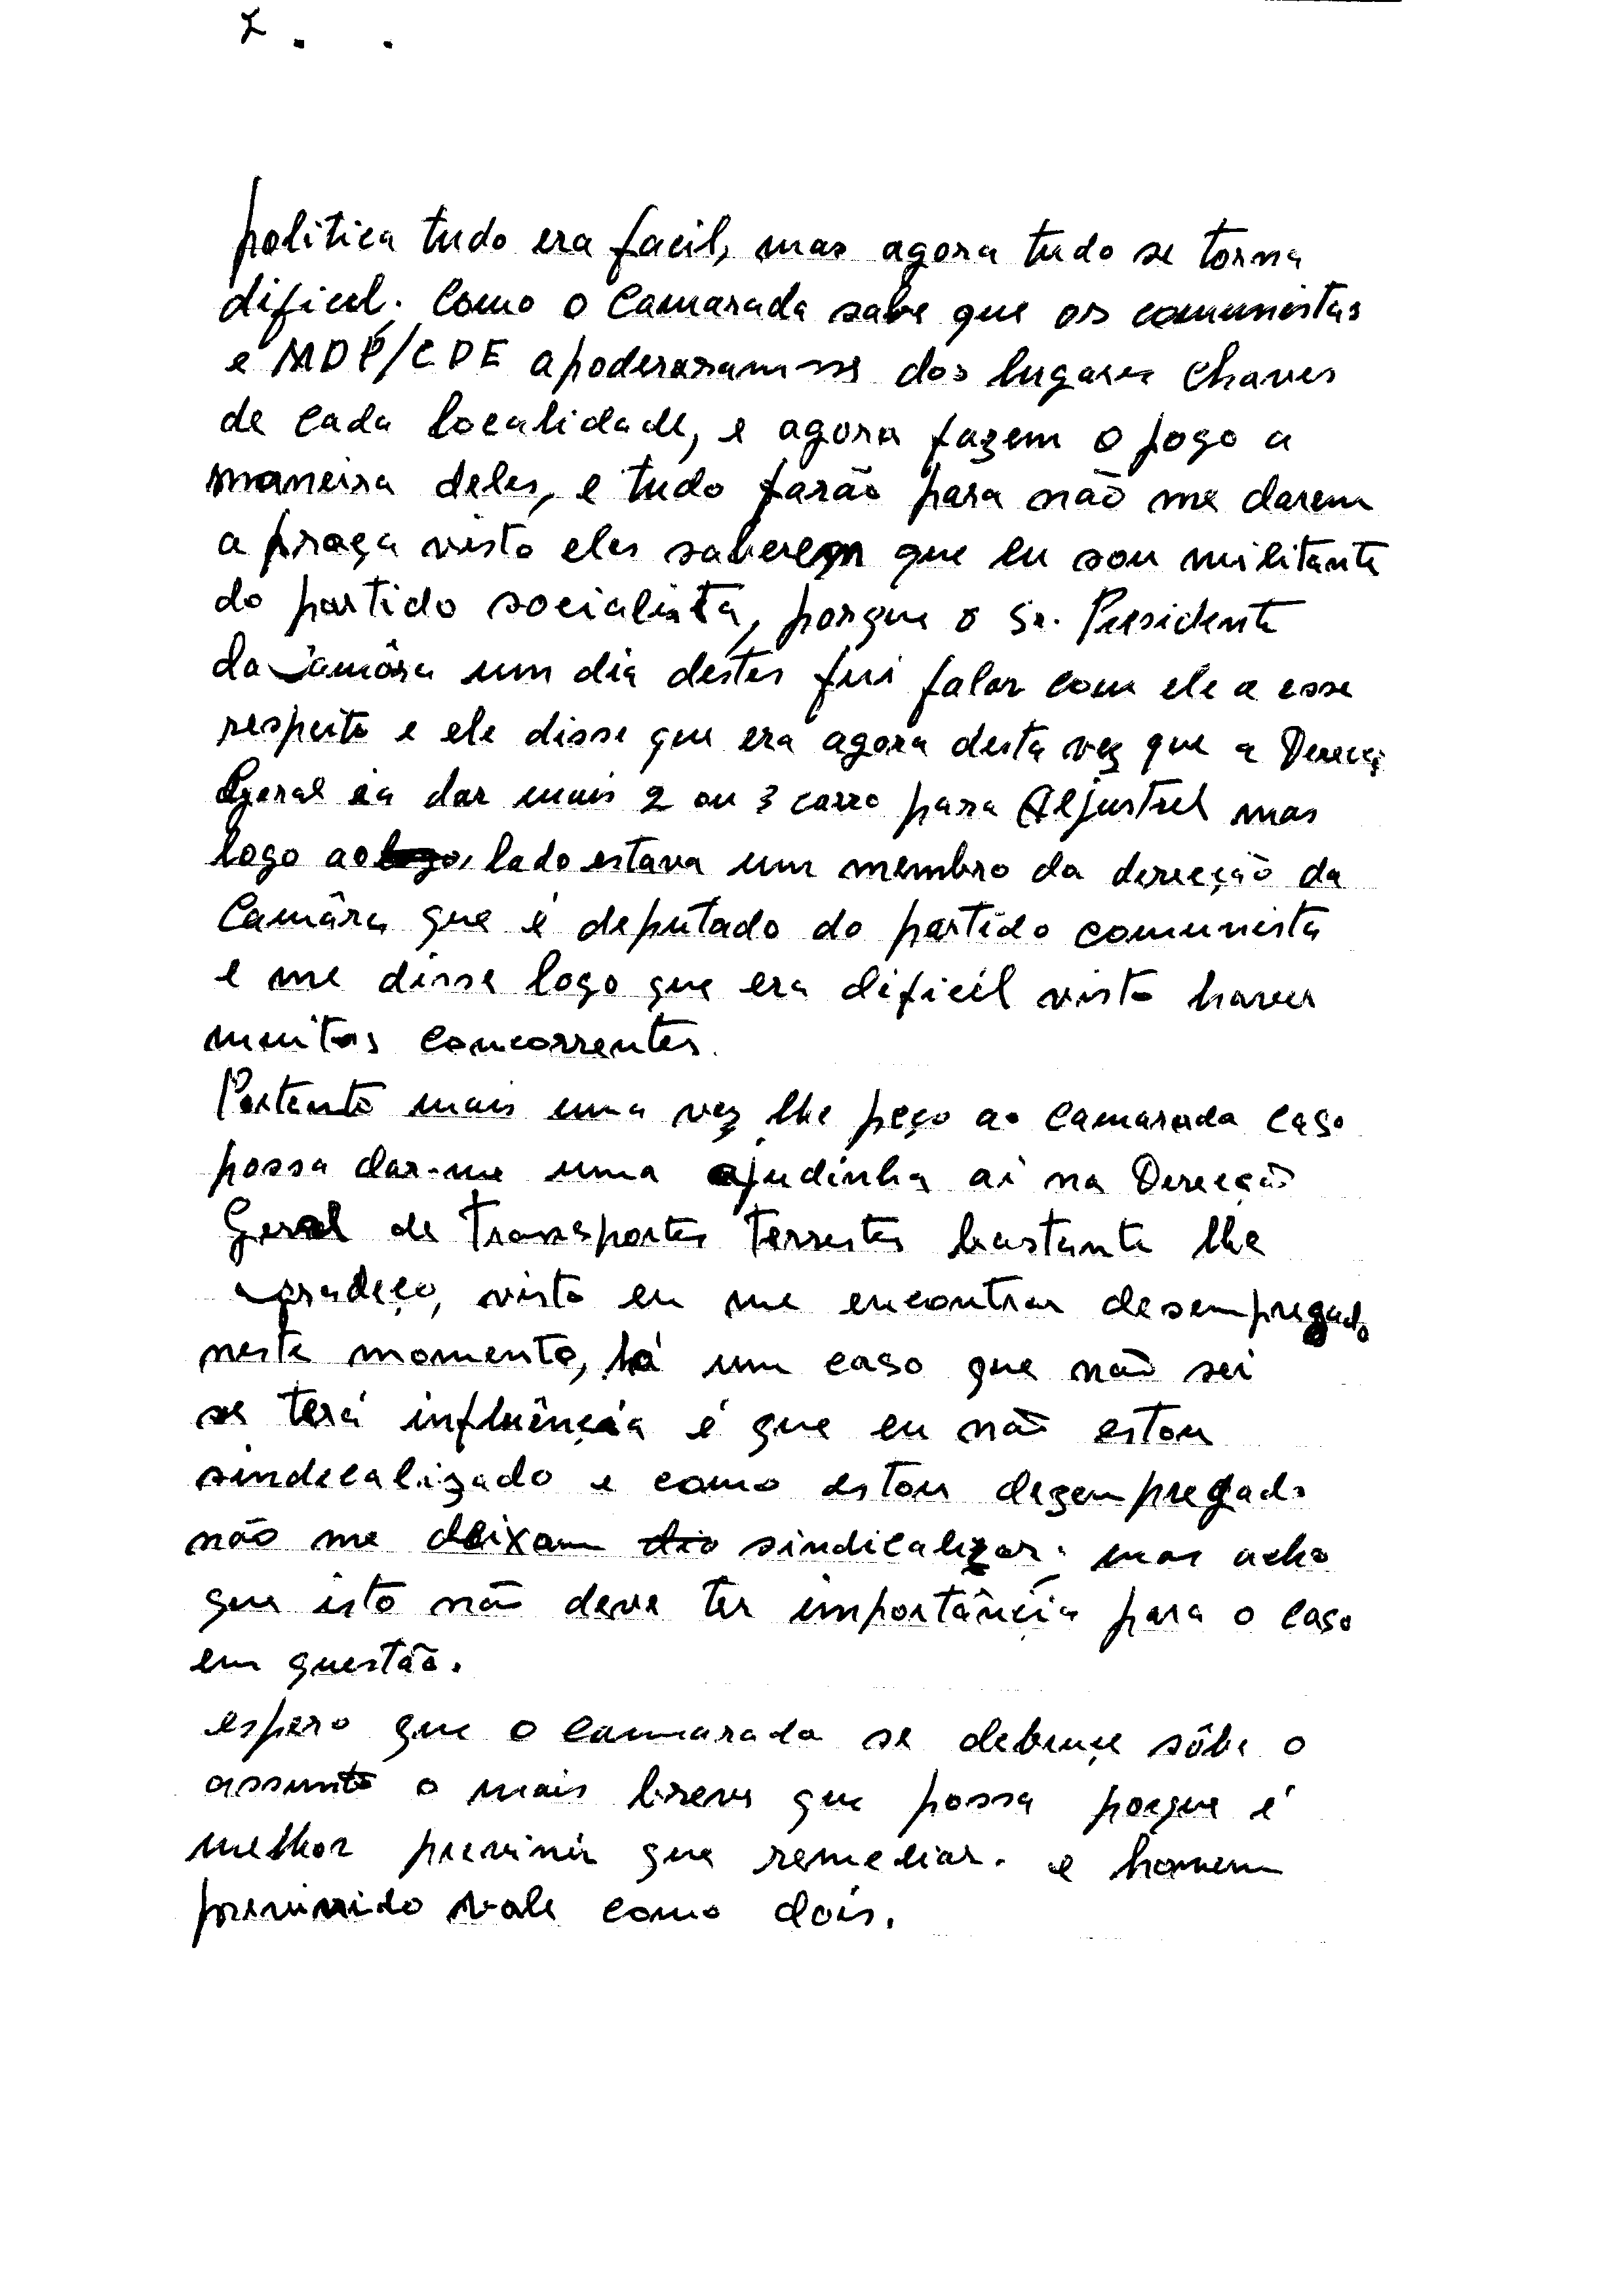 politica tudo era facil, mas agora tudo se torna
dificil. Como o Camarada sabe que os comunistas
e MDP/CDE apoderaram-se dos lugares chaves
de cada localidade, e agora fazem o jogo a
maneira deles, e tudo farão para não me darem
a praça visto eles saberem que eu sou militante
do partido socialista, porque o Sr. Presidente
da Camâra um dia destes fui falar com ele a esse
respeito e ele disse que era agora desta vez que a Direcç
Geral ia dar mais 2 ou 3 carro para Aljustrel mas
logo ao lado estava um membro da direcção da
Camâra que é deputado do partido comunista
e me disse logo que era dificil visto haver
muitos concorrentes.
Portanto mais uma vez lhe peço ao Camarada caso
possa dar-me uma ajudinha aí na Direcção
Geral de Transportes Terrestes bastante lhe
agradeço, visto eu me encontrar desempregado
neste momento, há um caso que não sei
se terá influência é que eu não estou
sindecalizado e como estou dezempregado
não me deixam sindicalizar; mas acho
que isto não deve ter importância para o caso
em questão.
espero que o camarada se debruçe sôbe o
assunto o mais breve que possa porque é
melhor previnir que remediar. e homem
previnido vale como dois.